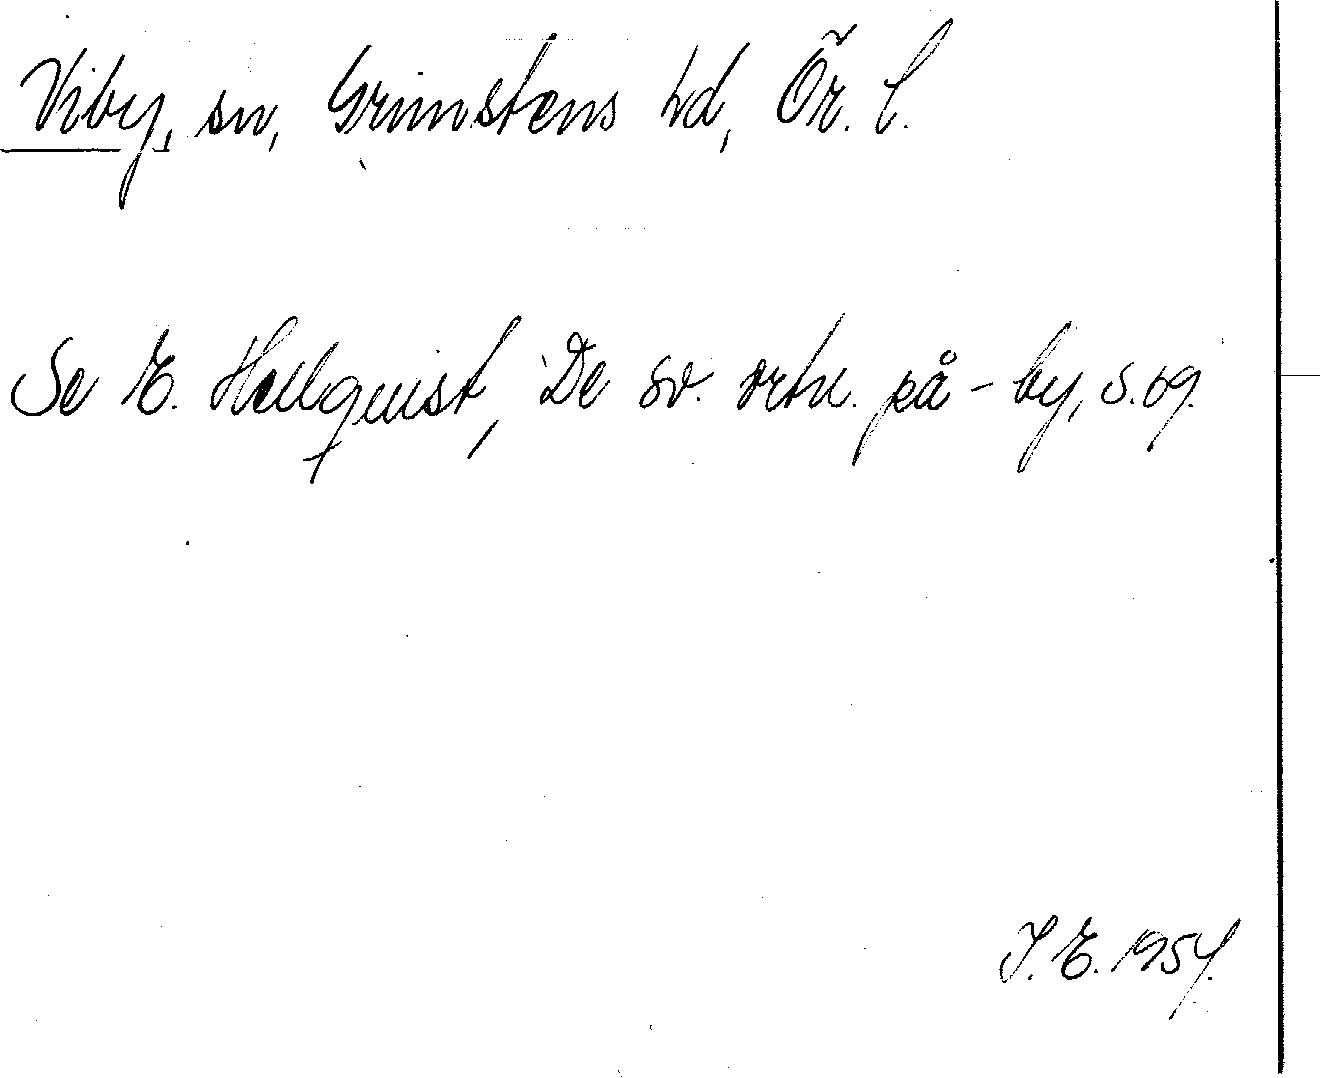 Viby, sn, Grimstens hd, Ör. l.
Se E. Hellquist, De sv. ortn. på -by, s. 69.
I. E. 1954.